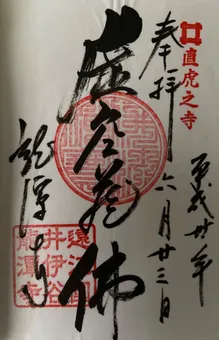 直虎之寺
奉拝
平成年
六月廿三日
虚空蔵佛
龍潭寺
遠江国
井伊谷
龍潭寺